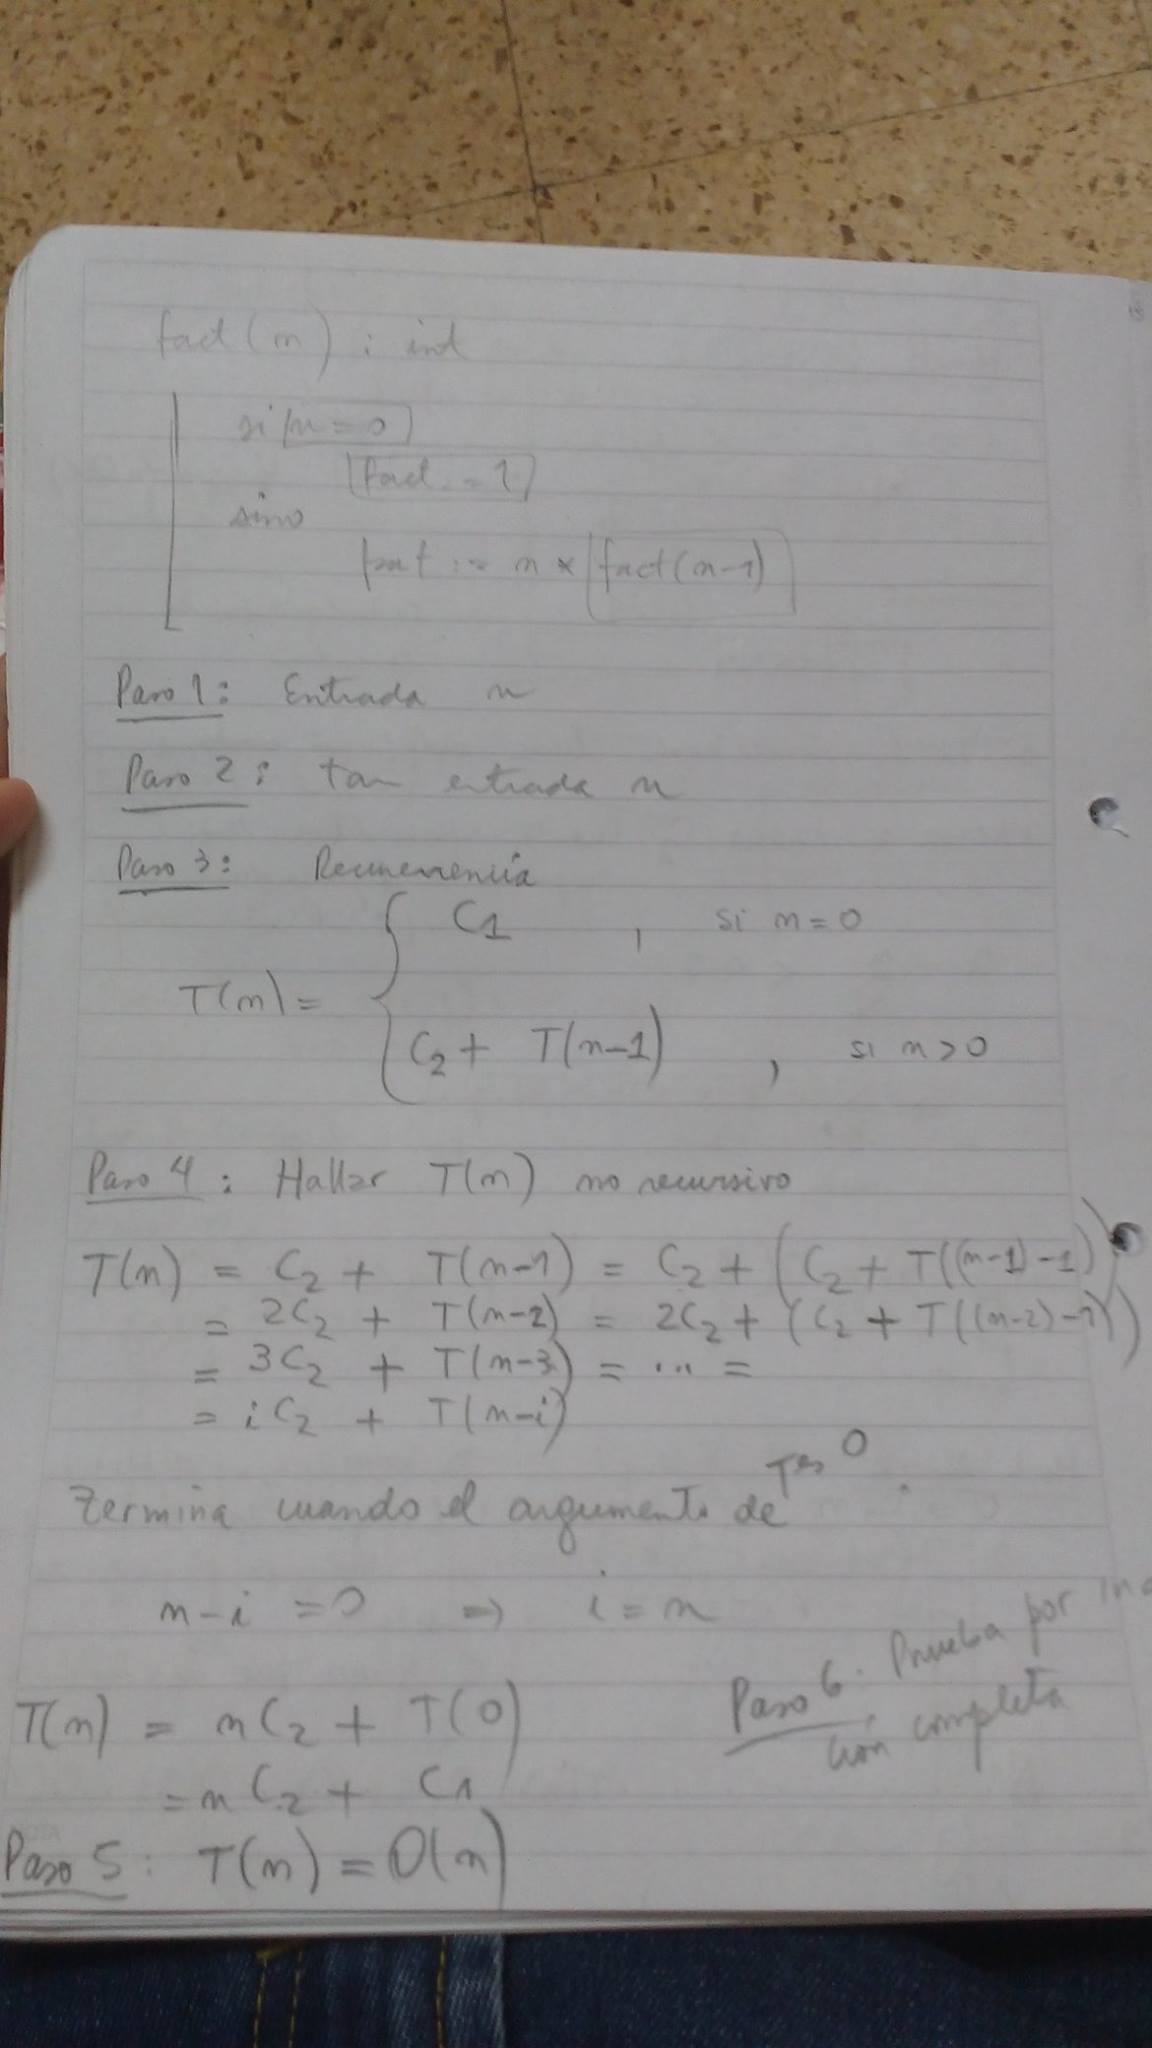 fact(n) : int
si n=0
fact := 1
sino
fact := n * fact(n-1)
Paso 1: Entrada n
Paso 2: tam entrada n
Paso 3: Recurrencia
C1 , si n=0
T(n) =
C2 + T(n-1) , si n>0
Paso 4: Hallar T(n) no recursivo
T(n) = C2 + T(n-1) = C2 + (C2 + T((n-1)-1))
= 2C2 + T(n-2) = 2C2 + (C2 + T((n-2)-1))
= 3C2 + T(n-3) = ... =
= iC2 + T(n-i)
Termina cuando el argumento de T es 0.
n-i = 0 ⇒ i = n
T(n) = nC2 + T(0)
= nC2 + C1
Paso 5: T(n) = O(n)
Paso 6: Prueba por induc
ción completa